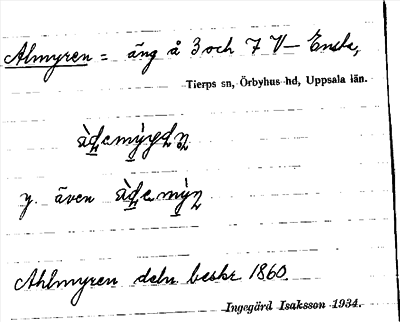 Almyren = äng å 3 och 7 V– Ensta,
Tierps sn, Örbyhus hd, Uppsala län.
y. även
Ahlmyren deln beskr 1860
Ingegärd Isaksson 1934.